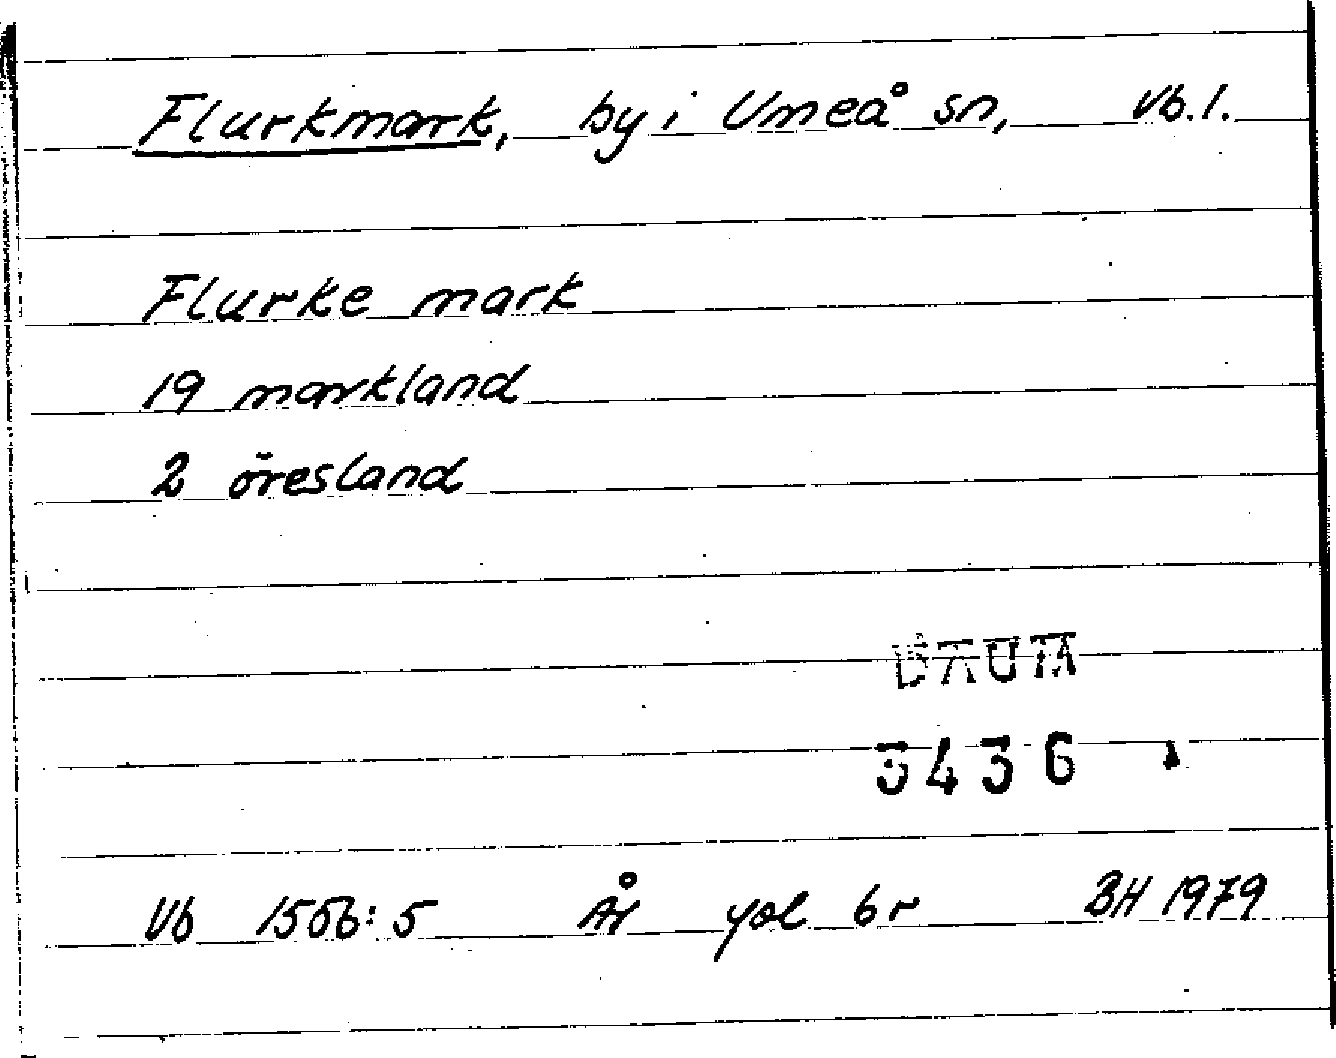 Flurkmark, by i Umeå sn, Vb.l.
Flurke mark
19 markland
2 öresland
DAUM
3436
Vb 1556:5 År fol 6r BH 1979